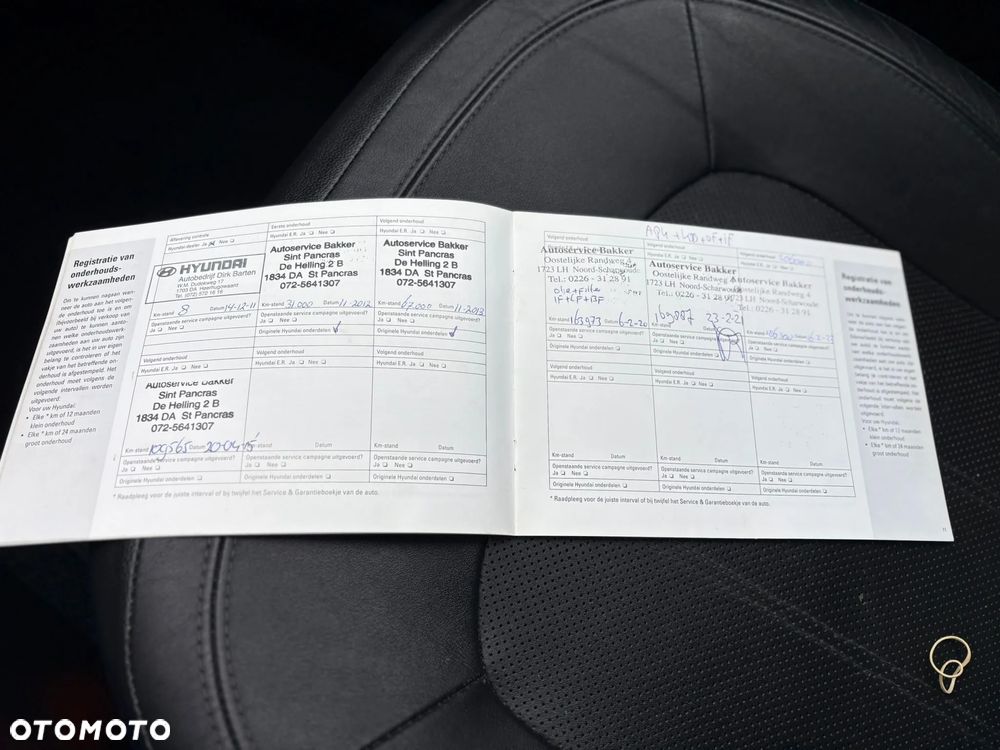 Registratie van
onderhouds-
werkzaamheden
Om te kunnen nagaan wan-
neer de auto aan het volgen-
de onderhoud toe is en om
(bijvoorbeeld bij verkoop van
uw auto) te kunnen aanto-
nen welke onderhoudswerk-
zaamheden aan uw auto zijn
uitgevoerd, is het in uw eigen
belang te controleren of het
vakje van het betreffende on-
derhoud is afgestempeld. Het
onderhoud moet volgens de
volgende intervallen worden
uitgevoerd:
Voor uw Hyundai:
• Elke * km of 12 maanden
klein onderhoud
• Elke * km of 24 maanden
groot onderhoud
Aflevering controle
Hyundai-dealer Ja Nee
HYUNDAI
Autobedrijf Dirk Barten
W.M. Dudokweg 17
1703 DA Heerhugowaard
Tel. (072) 570 16 16
Km-stand 8 Datum 14-12-11
Openstaande service campagne uitgevoerd?
Ja Nee
Eerste onderhoud
Hyundai E.R. Ja Nee
Autoservice Bakker
Sint Pancras
De Helling 2 B
1834 DA St Pancras
072-5641307
Km-stand 31.000 Datum 11-2012
Openstaande service campagne uitgevoerd?
Ja Nee
Originele Hyundai onderdelen
Volgend onderhoud
Hyundai E.R. Ja Nee
Autoservice Bakker
Sint Pancras
De Helling 2 B
1834 DA St Pancras
072-5641307
Km-stand 67.000 Datum 11-2013
Openstaande service campagne uitgevoerd?
Ja Nee
Originele Hyundai onderdelen
Volgend onderhoud
Hyundai E.R. Ja Nee
Autoservice Bakker
Sint Pancras
De Helling 2 B
1834 DA St Pancras
072-5641307
Km-stand 100,565 Datum 20-04-15
Openstaande service campagne uitgevoerd?
Ja Nee
Originele Hyundai onderdelen
Volgend onderhoud
Hyundai E.R. Ja Nee
Km-stand Datum
Openstaande service campagne uitgevoerd?
Ja Nee
Originele Hyundai onderdelen
Volgend onderhoud
Hyundai E.R. Ja Nee
Km-stand Datum
Openstaande service campagne uitgevoerd?
Ja Nee
Originele Hyundai onderdelen
* Raadpleeg voor de juiste interval of bij twijfel het Service & Garantieboekje van de auto.
Volgend onderhoud
Autoservice Bakker
Oostelijke Randweg
1723 LH Noord-Scharwoude
Tel.: 0226 - 31 28 91
olie+filter
IF+CF+BF
Km-stand 163973 Datum 6-2-20
Openstaande service campagne uitgevoerd?
Ja Nee
Originele Hyundai onderdelen
Volgend onderhoud
Hyundai E.R. Ja Nee
Autoservice Bakker
Oostelijke Randweg 4
1723 LH Noord-Scharwoude
Tel.: 0226 - 31 28 91
Km-stand 169887 Datum 23-2-21
Openstaande service campagne uitgevoerd?
Ja Nee
Originele Hyundai onderdelen
Volgend onderhoud
Hyundai E.R. Ja Nee
Oostelijke Randweg 4
1723 LH Noord-Scharwoude
Tel.: 0226 - 31 28 91
Openstaande service campagne uitgevoerd?
Ja Nee
Originele Hyundai onderdelen
Volgend onderhoud
Hyundai E.R. Ja Nee
Km-stand Datum
Openstaande service campagne uitgevoerd?
Ja Nee
Originele Hyundai onderdelen
Volgend onderhoud
Hyundai E.R. Ja Nee
Km-stand Datum
Openstaande service campagne uitgevoerd?
Ja Nee
Originele Hyundai onderdelen
Volgend onderhoud
Hyundai E.R. Ja Nee
Km-stand Datum
Openstaande service campagne uitgevoerd?
Ja Nee
Originele Hyundai onderdelen
* Raadpleeg voor de juiste interval of bij twijfel het Service & Garantieboekje van de auto.
Registratie van
onderhouds-
werkzaamheden
Voor uw Hyundai:
• Elke * km of 12 maanden
klein onderhoud
• Elke * km of 24 maanden
groot onderhoud
11
OTOMOTO